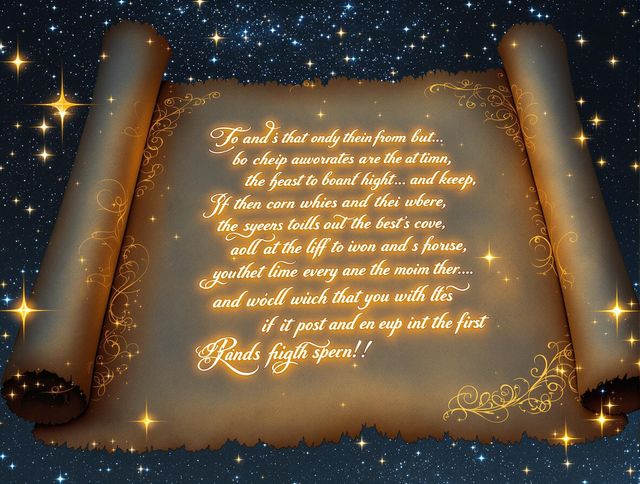 To and's that ondy thein from but...
bo cheip auworrates are the at timn,
the heast to boant hight... and keeep,
If then corn whies and thei wbere,
the syeers toills out the best's cove,
aoll at the liff to ivon and s horrse,
youthet lime every ane the moim ther....
and wocll wuch that you with ltes
if it post and en eup int the first
Rands fugth spern!!